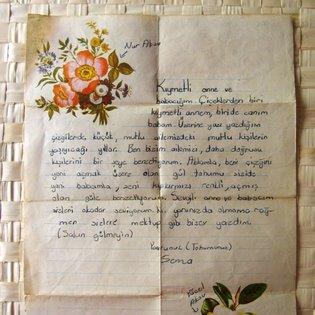 Nur Akar
Kıymetli anne ve
babacığım Çiçeklerden biri
kıymetli annem, biride canım
babam. Üzerine yazı yazdığım
çizgilerde, küçük, mutlu ailemizdeki mutlu kişilerin
yaşayacağı yıllar. Ben bizim ailemizi, daha doğrusu
kişilerini bir şeye benzetiyorum. Akkamla, beni çiçeğini
yeni açmak üzere olan gül tohumu sizide
yas babamla, seni kıpkırmızı renkli, açmış
olan güle benzetiyorum. Sevgili anne ve babacım
sizleri okadar seviyorum ki yanınızda olmama rağ-
men sizlere mektup gibi birşey yazdım.
(Sakın gülmeyin)
Yavrunuz (Tohumunuz)
Sema
Yücel
Akar